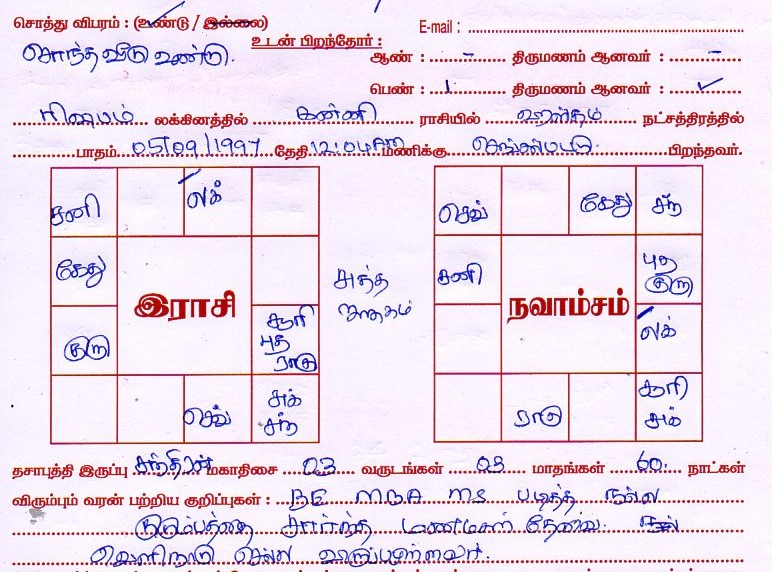 சொத்து விபரம் : (உண்டு / இல்லை)
E-mail :
சொந்த வீடு உண்டு.
உடன் பிறந்தோர் :
ஆண் : - திருமணம் ஆனவர் : -
பெண் : 1 திருமணம் ஆனவர் : ✓
ரிஷபம் லக்கினத்தில் கன்னி ராசியில் ஹஸ்தம் நட்சத்திரத்தில்
பாதம் 05/09/1997 தேதி 12:04 மணிக்கு பிறந்தவர்.
சனி லக்
கேது
குரு
சூரி
புத
ராகு
செவ்
சுக்
சந்
இராசி
சுத்த
ஜாதகம்
செவ் கேது சந்
சனி
புத
குரு
லக்
சூரி
சுக்
ராகு
நவாம்சம்
தசாபுத்தி இருப்பு சந்திரன் மகாதிசை 03 வருடங்கள் 03 மாதங்கள் நாட்கள்
விரும்பும் வரன் பற்றிய குறிப்புகள் : BE MBA MS படித்த நல்ல
குடும்பத்தை சார்ந்த மணமகன் தேவை.
வெளிநாடு செல்ல